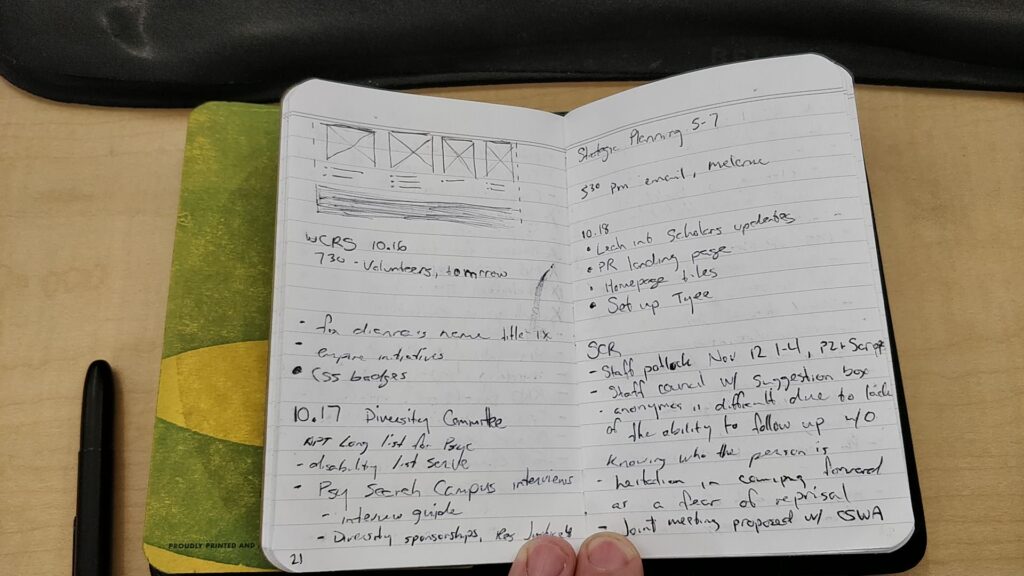 WCRS 10.16
730 - Volunteers, tomorrow
- fix name title 1x
- empire initiatives
• CSS badges
10.17 Diversity Committee
Long list for Psyc
- disability list serve
- Psy Search Campus interviews
- interview guide
- Diversity sponsorships,
21
PROUDLY PRINTED AND
Strategic Planning 5-7
530 pm email, melanie
10.18
• Scholars updates
• PR landing page
• Homepage tiles
• Set up Tyee
SCR
- Staff potlock Nov 12 1-4,
- Staff council w/ suggestion box
- anonymes is difficult due to lack
of the ability to follow up w/o
Knowing who the person is
- hesitation in coming forward
as a fear of reprisal
- Joint meeting proposed w/ CSWA